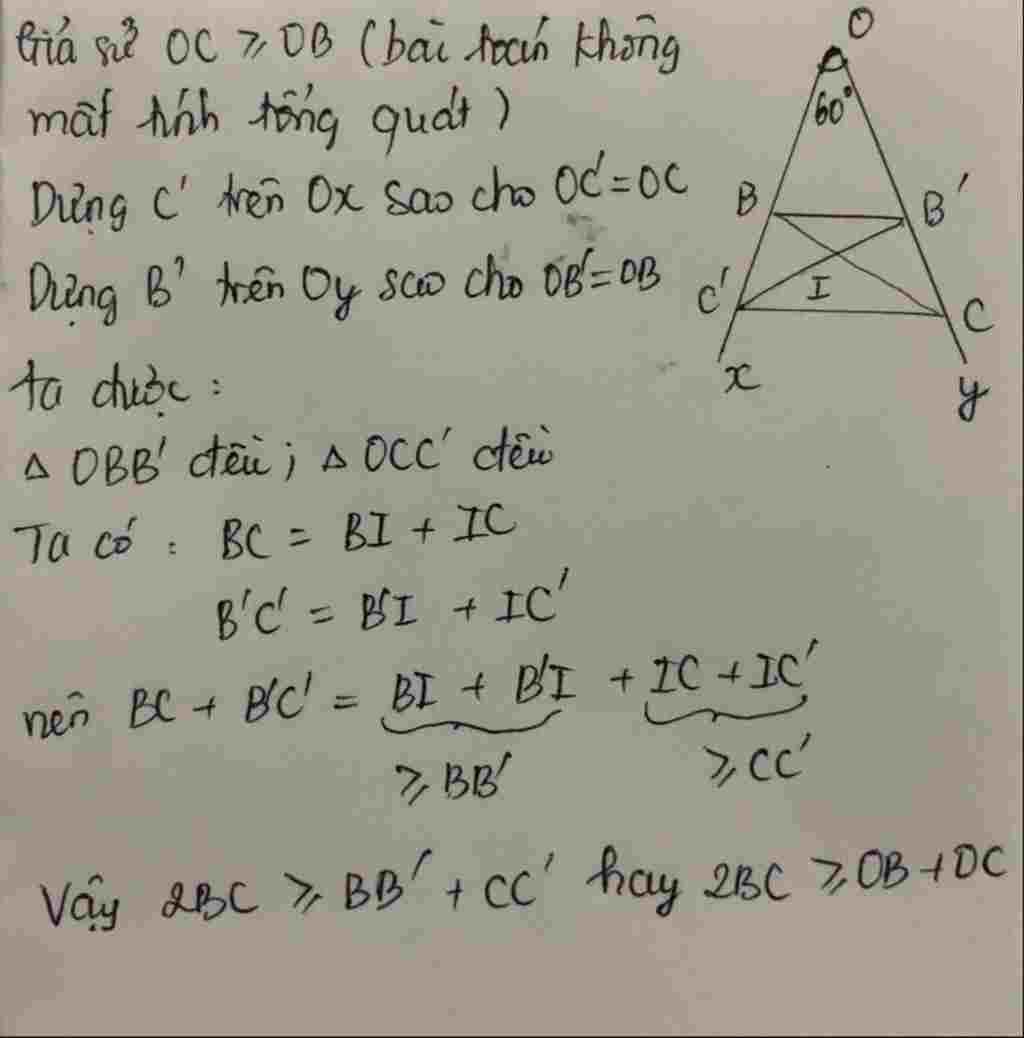 Giả sử OC ⩾ OB (bài toán không
mất tính tổng quát)
Dựng C' trên Ox sao cho OC'=OC
Dựng B' trên Oy sao cho OB'=OB
ta được :
△ OBB' đều; △ OCC' đều
Ta có : BC = BI + IC
B'C' = B'I + IC'
nên BC + B'C' = BI + B'I + IC + IC'
⩾ BB' ⩾ CC'
Vậy 2BC ⩾ BB' + CC' hay 2BC ⩾ OB+OC
O
60°
B B'
C' I C
x y